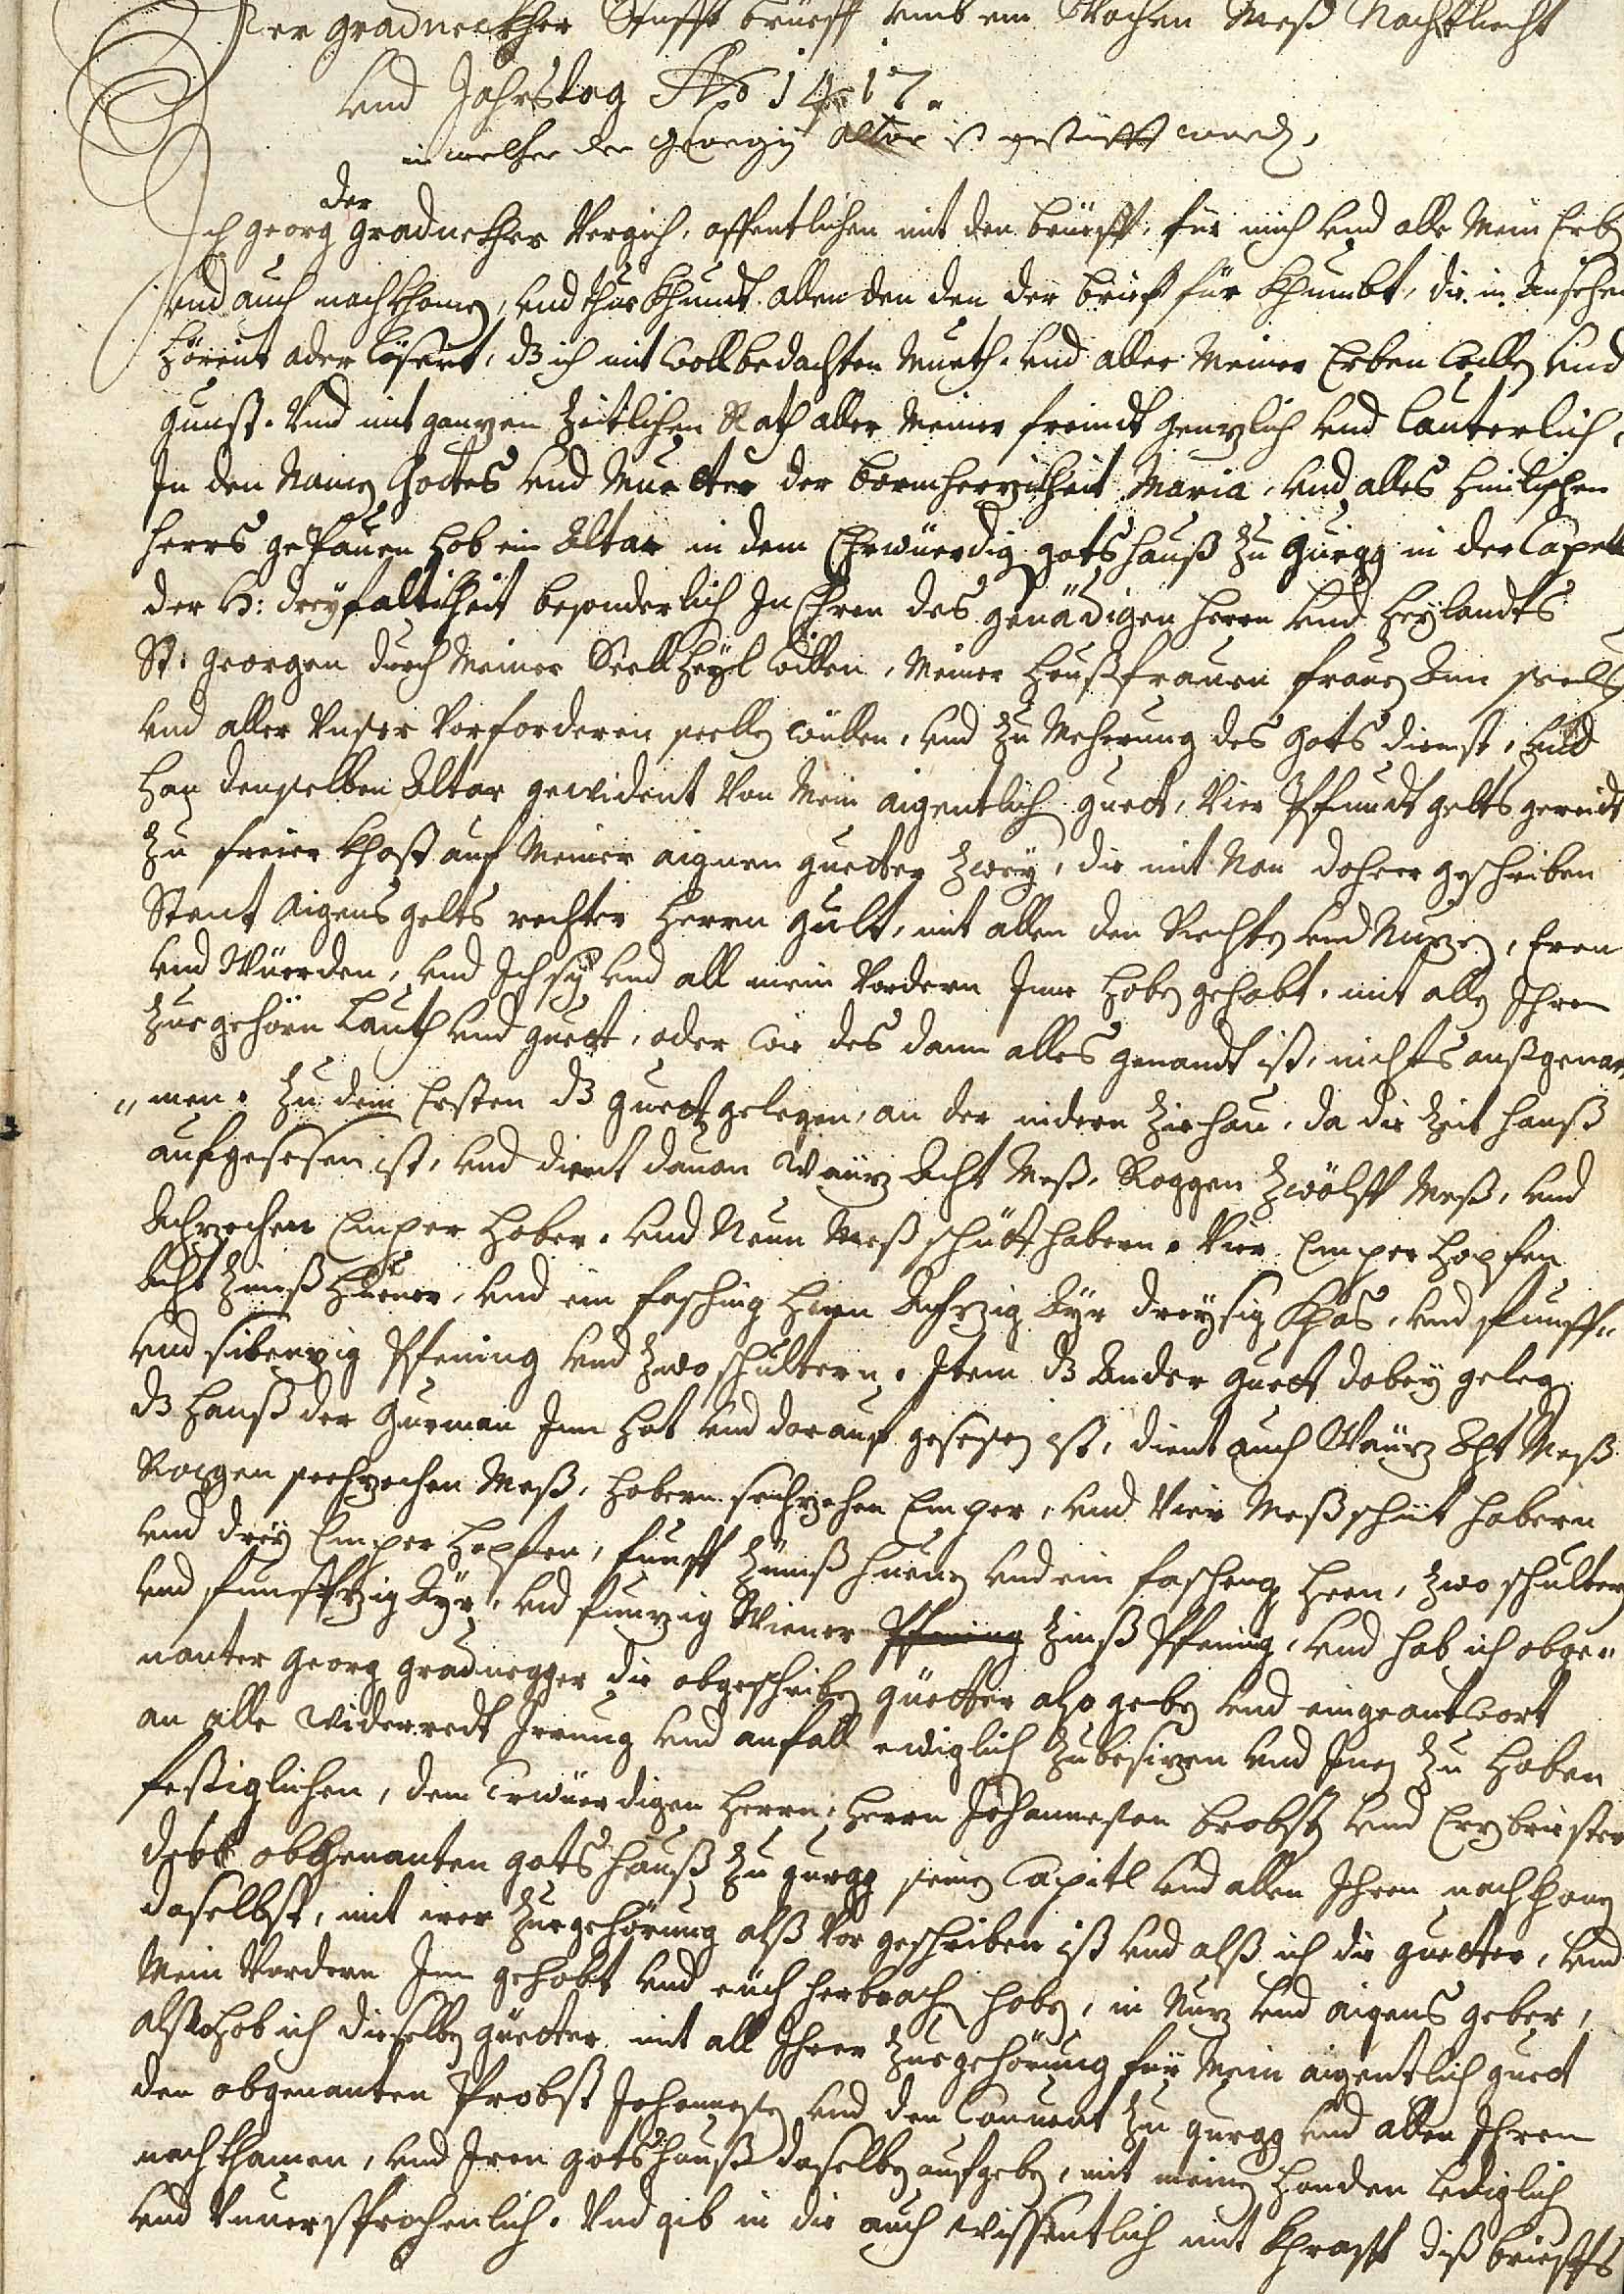 Der gradneckher Stüfft brüeff umb ein Wochen Meß Nachtliecht
und Jahrstag Ao 1417.
in welcher der Georgij Altar ist gestüfft word,
der
Ich georg gradnekher Vergich, offentlichen mit den brüeff, für mich und alle Mein Erb
und auch nachkhomen, und thue khundt allen den den der brief für khumbt, die in Ansehen
hörent oder lösent, dz ich mit wollbedachten Mueth, und aller Meiner Erben willen und
gunst. Und mit ganzen zeitlichen Rath aller Meiner freindt genzlich und lauterlich
In den Namen Gottes und Muetter der barmherzikheit Maria, und alles himlischen
hers gepauen hab ein Altar in dem Ehrwüerdig gotshauß zu Gurgg in der Capell
der H: dreyfaltikheit besonderlich In Ehren des genädigen herrn und heylandts
St: Georgen durch Meiner Seell heyl willen, Meiner haußfrauen frauen Ann seell
und aller Unser Vorforderen seellen willen, und zu Mehrung des Gots dienst, und
han denselben Altar gewident Von Mein aigentlich guett, Vier Pfundt gelts
zu freier khost auf Meiner aignen guetter zwey, die mit Nam daher geschriben
Stent Aigens gelts rechter herrn gült, mit allen den Rechten und Nuzen, Eren
und Würden, und Ich sy und all mein Vordern Inne haben gehabt, mit allen Ihren
zuegehörn lauth und guett, oder wie des dann alles genandt ist, nichts außgenom
"men. zu dem Ersten dz guett gelegen, an der nidern zirhau, da die zeit hanß
aufgesesen ist, und dient dauon Waiz Acht Meß, Roggen zwölff Meß, und
Achzechen Emper haber, und Neun Meß schütt habern, Vier Emper hopfen
Acht zinß hüener, und ein fasching henn Achzig Ayr dreysig Khäs, und funff"
und sibenzig Pfening und zwo schultern, Item dz Ander guett dabey geleg
dz hanß der Gurman Inn hat und darauf gesesen ist, dient auch Waiz Acht Meß
Roggen sechzechen Meß, habern sechzehen Emper, und Vier Meß schüt habern
und drey Emper hopfen, funff zünß huener und ein fasching henn, zwo schultern
und funffzig Ayr, und funzig Wiener Pfening zinß Pfening, und hab ich obge"
nanter georg gradnegger die obgeschriben güetter also geben und eingeantwort
an alle widerredt Irrung und anfall ewiglich zubesizen und Inen zu haben
festiglichen, dem Erwüerdigen herrn, herrn Johannesen brobst und Erzbriester
dess obbenanten gotshauß zu gurgg seinen Capitl und allen Ihren nachkhomen
daselbst, mit irer zuegehörung alß Vor geschriben ist und alß ich die guetter, und
Mein Vordern Inn gehabt und auch herbracht haben, in Nuz und aigens geber,
also hab ich dieselben güetter mit all Ihrer zuegehörung für Mein aigentlich guett
den obgenanten Probst Johannesen und den Conuent zu gurgg und allen Ihren
nachkhamen, und Iren gotshauß daselben aufgeben, mit meinen handen lediglich
und Unuersprochenlich. Und gib in die auch wissentlich mit khrafft diß brieffs